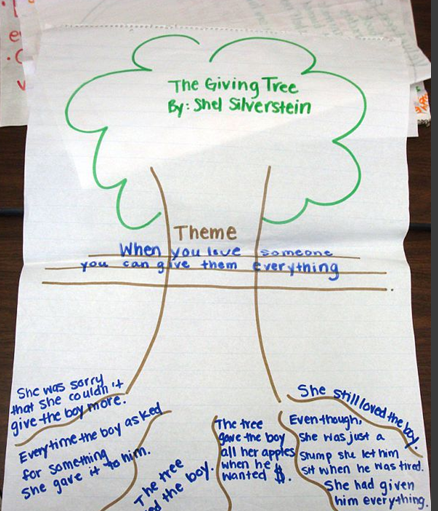 The Giving Tree
By: Shel Silverstein
Theme
When you love someone
you can give them everything
She was sorry
that she couldn't
give the boy more.
Everytime the boy asked
for something
she gave it to him.
The tree
the boy.
The tree
gave the boy
all her apples
when he
wanted $.
She still loved the boy.
Even though,
she was just a
stump she let him
sit when he was tired.
She had given
him everything.